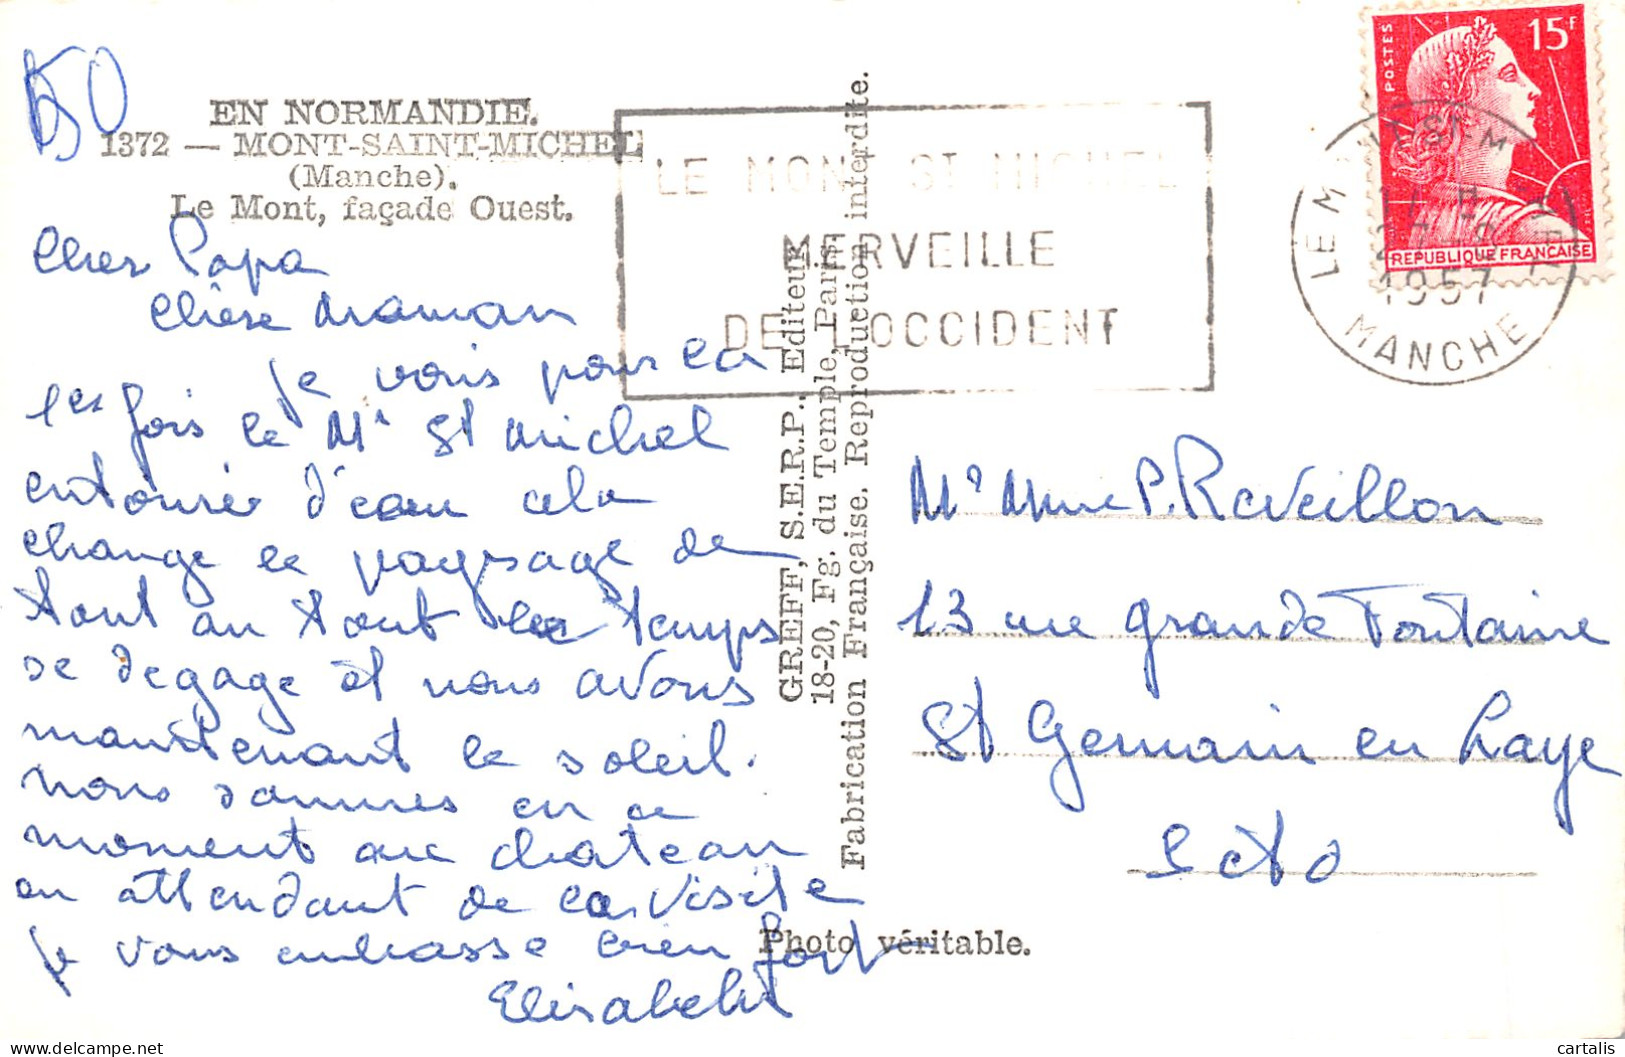 650
EN NORMANDIE.
1372 — MONT-SAINT-MICHEL
(Manche).
Le Mont, façade Ouest.
Cher Papa
Chère Maman
je vois pour la
1ère fois le Mt St Michel
entourée d'eau cela
change le paysage de
tout au tout le temps
se degage et nous avons
maintenant le soleil.
nous sommes en ce
moment au chateau
en attendant de la visite
je vous embrasse bien fort
Elisabeth
GREFF, S.E.R.P., Editeur
18-20, Fg. du Temple, Paris.
Fabrication Française. Reproduction interdite.
Photo véritable.
LE MONT ST MICHEL
MERVEILLE
DE L'OCCIDENT
POSTES
15F
REPUBLIQUE FRANÇAISE
LE MONT-ST-MICHEL
1957
MANCHE
Mr Mme P. Reveillon
13 rue grande Fontaine
St Germain en Laye
S et O
cartalis
delcampe.net